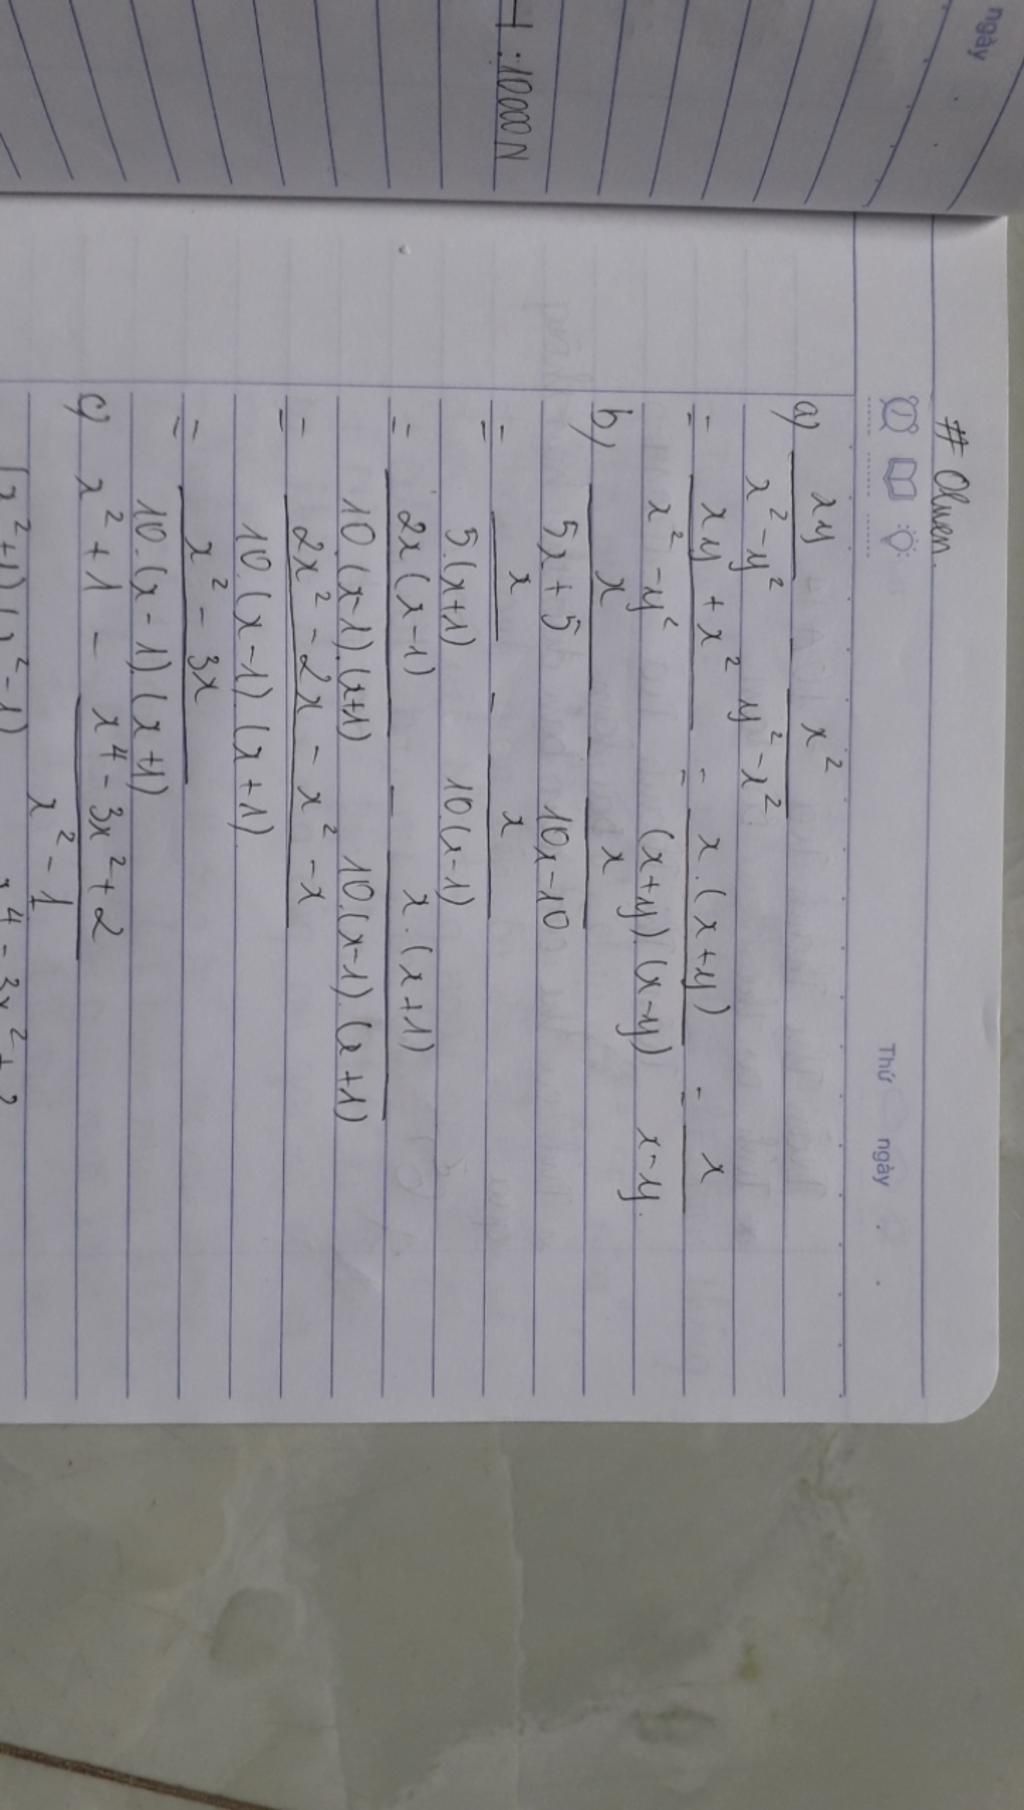 ngày
-1 : 10000 N
# Olwen.
Thứ ngày
a) xy/(x² - y²) - x²/(y² - x²)
= (xy + x²)/(x² - y²) = x.(x+y)/((x+y).(x-y)) = x/(x-y).
b) x/(5x + 5) - x/(10x - 10)
= x/(5.(x+1)) - x/(10(x-1))
= 2x(x-1)/(10.(x-1).(x+1)) - x.(x+1)/(10.(x-1).(x+1))
= (2x² - 2x - x² - x)/(10.(x-1)(x+1))
= (x² - 3x)/(10.(x-1).(x+1))
c) x² + 1 - (x⁴ - 3x² + 2)/(x² - 1)